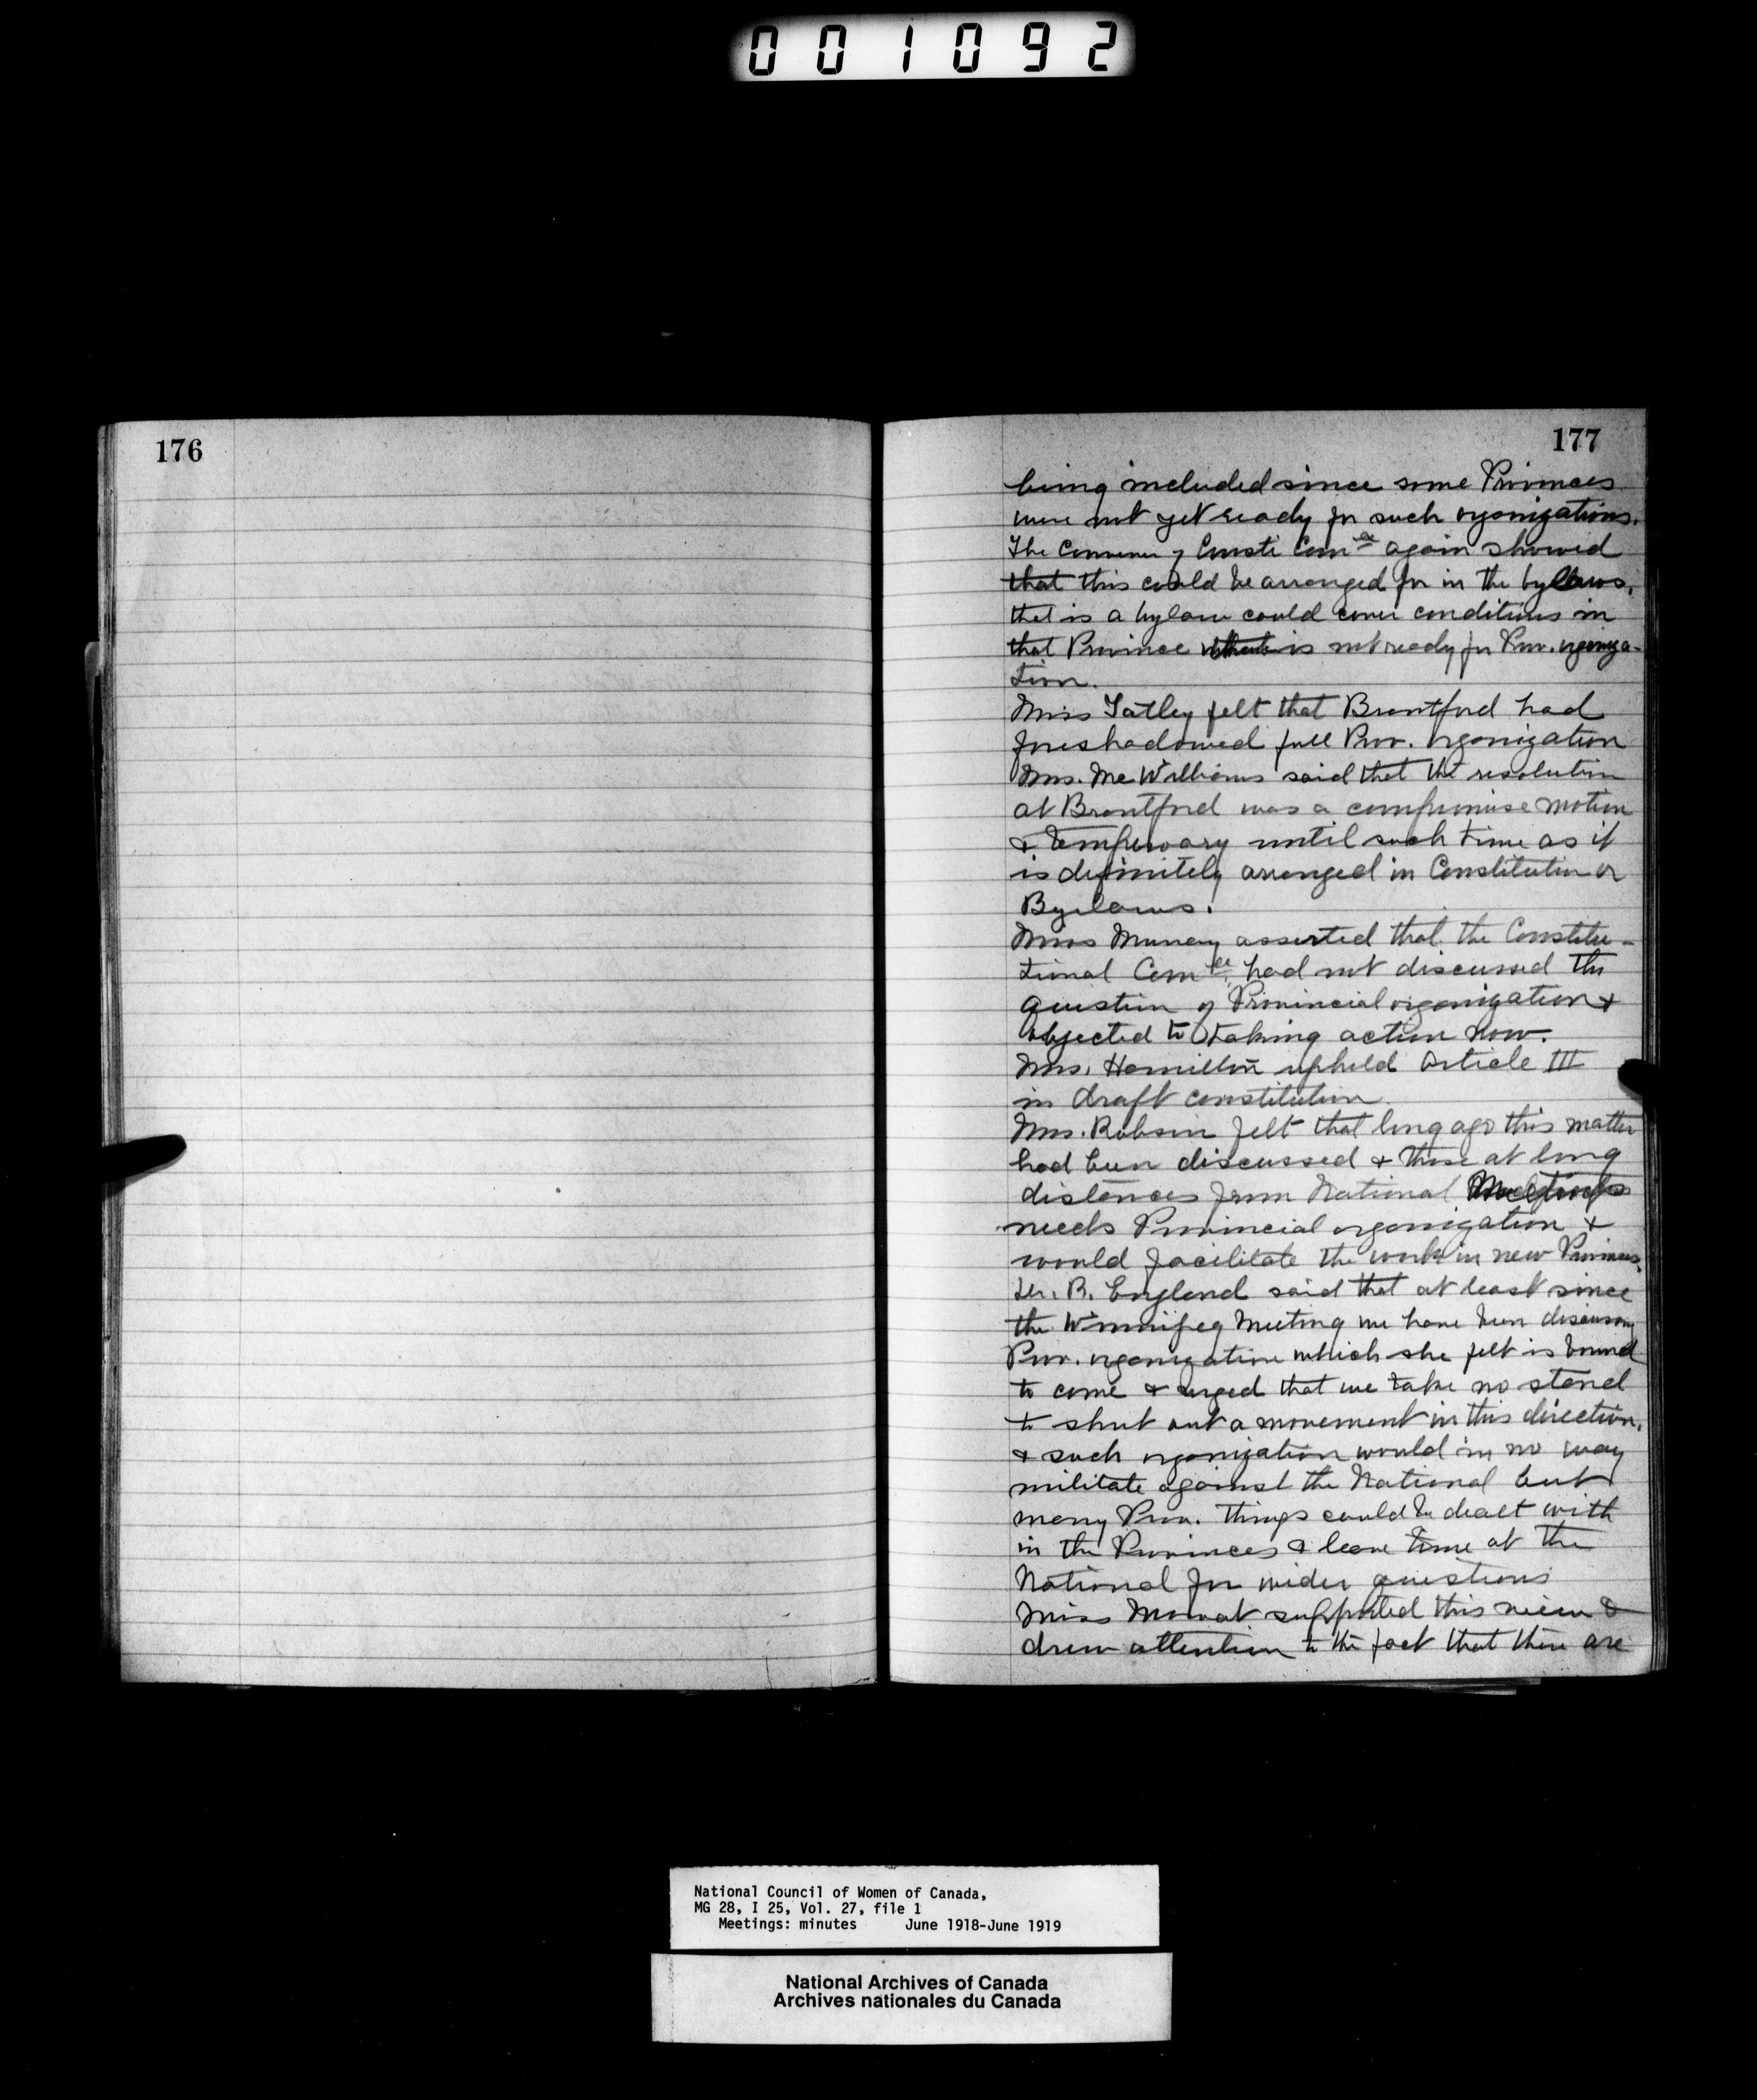 001092
176
177
being included since some Provinces
were not yet ready for such organizations.
The Convener of Consti Comee again showed
that this could be arranged for in the bylaws,
that is a bylaw could cover conditions in
that Province is not ready for Prov. organiza-
tion.
Miss Tatley felt that Brantford had
foreshadowed full Prov. organization
Mrs. McWilliams said that the resolution
at Brantford was a compromise motion
& temporary until such time as it
is definitely arranged in Constitution or
Byelaws.
Miss Murray asserted that the Constitu-
tional Comee had not discussed the
question of Provincial organization &
objected to taking action now.
Mrs. Hamilton upheld Article III
in draft constitution.
Mrs. Robson felt that long ago this matter
had been discussed & those at long
distances from National Meetings
needs Provincial organization &
would facilitate the work in new Provinces.
Dr. B. England said that at least since
the Winnipeg Meeting we have been discussing
Prov. organization which she felt is bound
to come & urged that we take no stand
to shut out a movement in this direction,
& such organization would in no way
militate against the National but
many Prov. things could be dealt with
in the Provinces & leave time at the
National for wider questions
Miss Mowat supported this view &
drew attention to the fact that there are
National Council of Women of Canada,
MG 28, I 25, Vol. 27, file 1
Meetings: minutes June 1918-June 1919
National Archives of Canada
Archives nationales du Canada